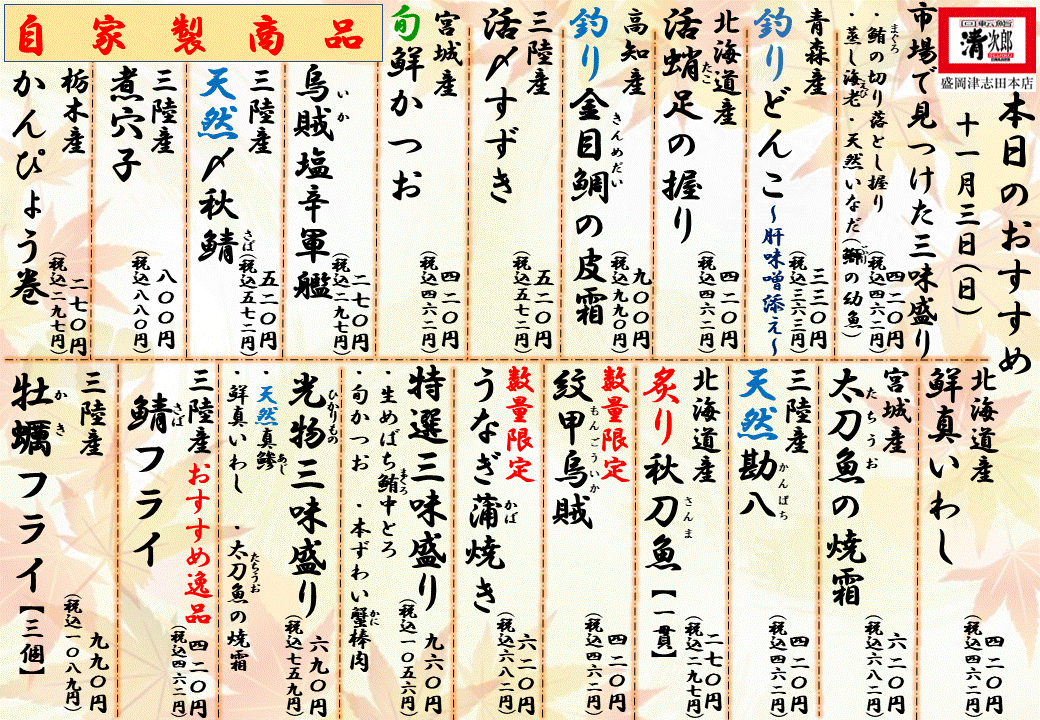 回転鮨
清次郎
盛岡津志田本店
本日のおすすめ
十一月三日(日)
市場で見つけた三味盛り
・鮪の切り落とし握り
まぐろ
・蒸し海老・天然いなだ(鰤の幼魚)
えび
四二〇円
(税込四六二円)
青森産
釣りどんこ~肝味噌添え~
三三〇円
(税込三六三円)
北海道産
活蛸足の握り
たこ
四二〇円
(税込四六二円)
高知産
釣り金目鯛の皮霜
きんめだい
九〇〇円
(税込九九〇円)
三陸産
活〆すずき
五二〇円
(税込五七二円)
宮城産
旬鮮かつお
四二〇円
(税込四六二円)
自家製商品
烏賊塩辛軍艦
いか
二七〇円
(税込二九七円)
三陸産
天然〆秋鯖
さば
五二〇円
(税込五七二円)
三陸産
煮穴子
八〇〇円
(税込八八〇円)
栃木産
かんぴょう巻
二七〇円
(税込二九七円)
北海道産
鮮真いわし
四二〇円
(税込四六二円)
宮城産
太刀魚の焼霜
たちうお
六二〇円
(税込六八二円)
三陸産
天然勘八
かんぱち
四二〇円
(税込四六二円)
北海道産
炙り秋刀魚【一貫】
さんま
二七〇円
(税込二九七円)
数量限定
紋甲烏賊
もんごういか
四二〇円
(税込四六二円)
数量限定
うなぎ蒲焼き
かば
六二〇円
(税込六八二円)
特選三味盛り
・生めばち鮪中とろ
まぐろ
・旬かつお ・本ずわい蟹棒肉
かに
九六〇円
(税込一〇五六円)
光物三味盛り
ひかりもの
・天然真鯵
あじ
・鮮真いわし ・太刀魚の焼霜
たちうお
六九〇円
(税込七五九円)
三陸産 おすすめ逸品
鯖フライ
さば
四二〇円
(税込四六二円)
三陸産
牡蠣フライ【三個】
かき
九九〇円
(税込一〇八九円)